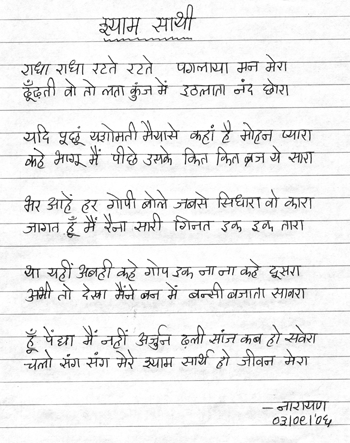 श्याम साथी
राधा राधा रटते रटते पगलाया मन मेरा
ढूँढती वो तो लता कुंज में इठलाता नंद छोरा
यदि पूछूं यशोमती मैयासे कहां है मोहन प्यारा
कहे भागू मैं पीछे उसके कित कित ब्रज ये सारा
भर आहें हर गोपी बोले जबसे सिधारा वो कारा
जागत हूँ मैं रैना सारी गिनत इक इक तारा
था यहीं अबही कहे गोप इक ना ना कहे दूसरा
अभी तो देखा मैंने बन में बन्सी बजाता सावरा
हूँ मैं नहीं अर्जुन ढली सांज कब हो सवेरा
चलो संग संग मेरे श्याम सार्थ हो जीवन मेरा
– नारायण
०३/०१/'०६